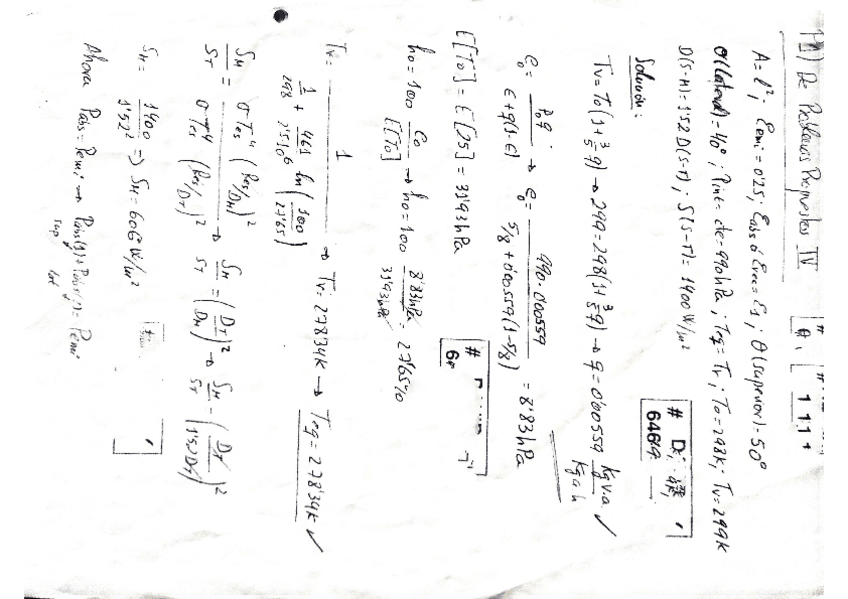 P1) De Problemas Propuestos IV
A = l²; Eemi = 0'25; Eabs ó Erec = E1; θ(superior) = 50°
θ(lateral) = 40°; Pint = cte = 990 hPa; Teq = Tr; T0 = 298K; Tv = 299K
D(S-H) = 1'52 D(S-T); S(S-T) = 1400 W/m²
Solución:
Tv = T0(1 + 3/5 q) → 299 = 298(1 + 3/5 q) → q = 0'00559 kg v.a / kg a.h ✓
e0 = P0 q / ε + q(1-ε) → e0 = 990 · 0'00559 / 5/8 + 0'00559(1-5/8) = 8'83 hPa
E[T0] = E[25] = 31'93 hPa
h0 = 100 e0 / E[T0] → h0 = 100 8'83 hPa / 31'93 hPa = 27'65%
Tr = 1 / 1/298 + 461/2'5·10⁶ ln(100/27'65) → Tr = 278'34K → Teq = 278'34K ✓
SH/ST = σTes⁴ (Res/DH)² / σTes⁴ (Res/DT)² → SH/ST = (DT/DH)² → SH/ST = (DT/1'52DT)²
SH = 1400/1'52² => SH = 606 W/m²
Ahora Pabs = Pemi → Pabs(1) + Pabs(2) = Pemi
sup lat
# D
6469